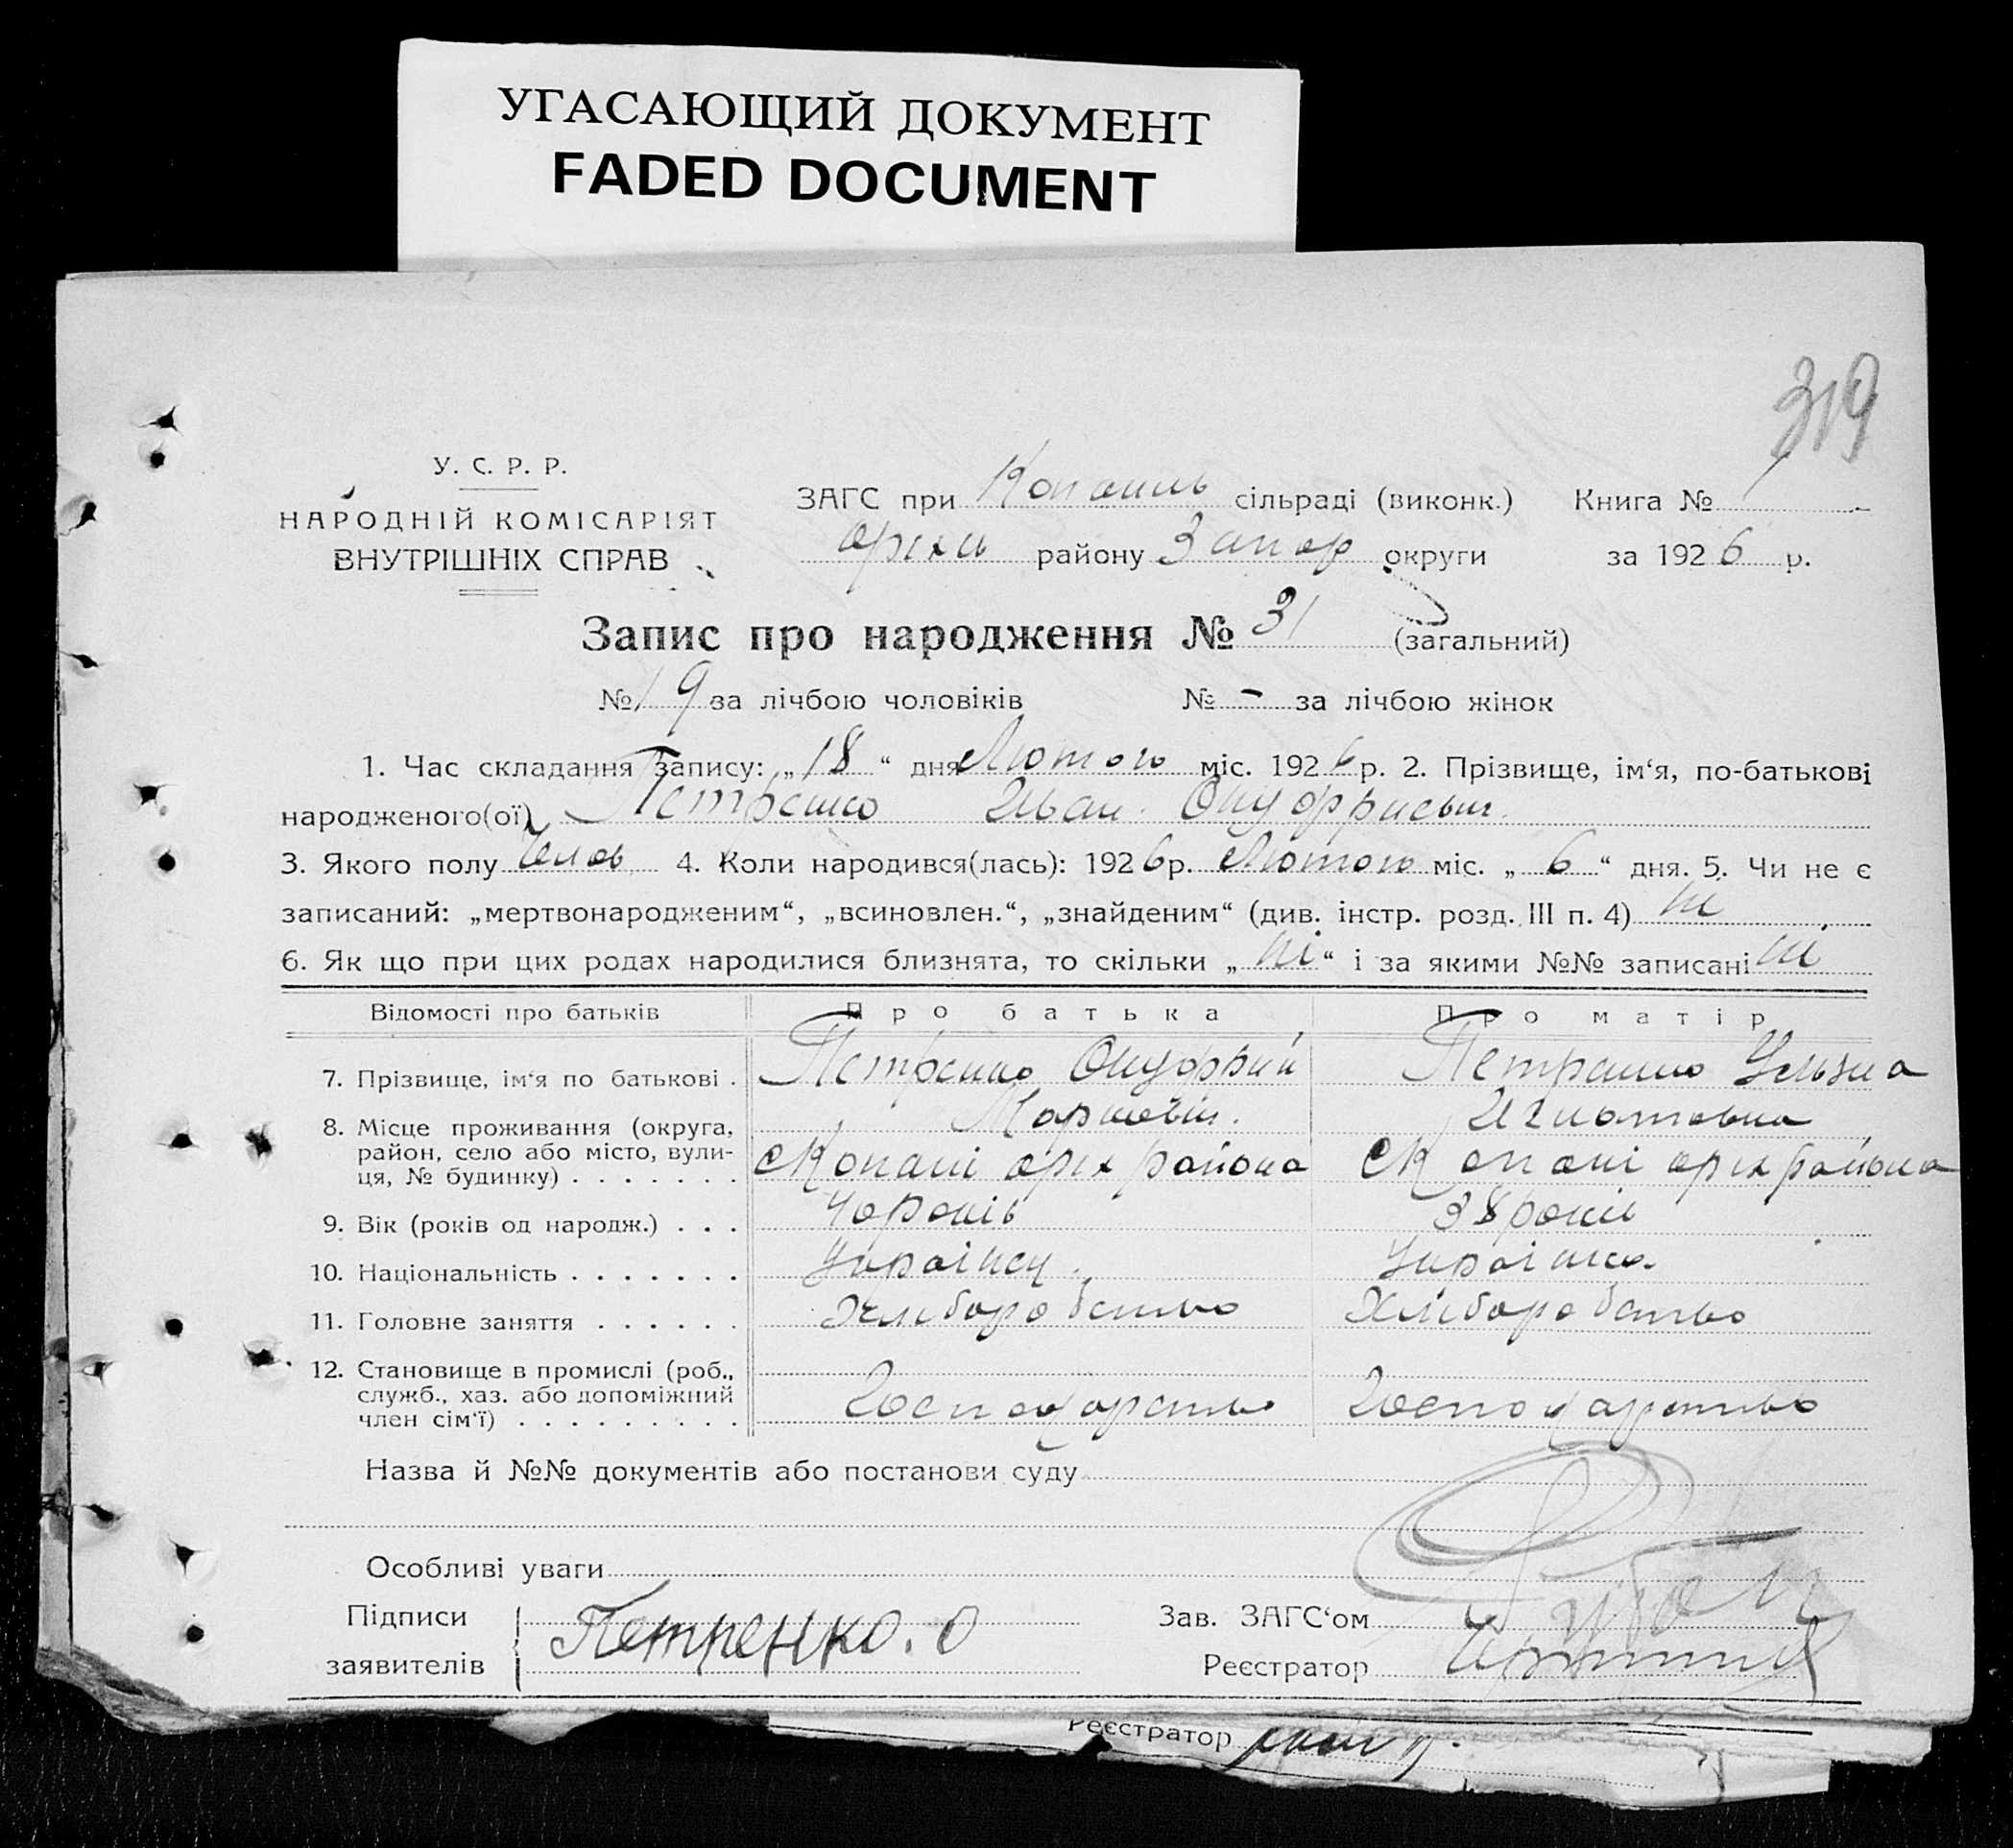 УГАСАЮЩИЙ ДОКУМЕНТ
FADED DOCUMENT
319
У. С. Р. Р.
НАРОДНІЙ КОМІСАРІЯТ
ВНУТРІШНІХ СПРАВ
ЗАГС при Копань сільраді (виконк.) Книга № 1
Оріхів району Запор округи за 1926 р.
Запис про народження № 31 (загальний)
№ 19 за лічбою чоловіків № - за лічбою жінок
1. Час складання запису: „18“ дня Лютого міс. 1926 р. 2. Прізвище, ім‘я, по-батькові
народженого(ої) Петренко Иван Онуфриевич
3. Якого полу Челов 4. Коли народився(лась): 1926 р. Лютого міс. „6“ дня. 5. Чи не є
записаний: „мертвонародженим“, „всиновлен.“, „знайденим“ (див. інстр. розд. III п. 4) ні
6. Як що при цих родах народилися близнята, то скільки „ні“ і за якими №№ записані ні
Відомості про батьків Про батька Про матір
7. Прізвище, ім‘я по батькові . Петренко Онуфрий Петренко Ульяна
Маркович. Игнатовна
8. Місце проживання (округа,
район, село або місто, вули-
ця, № будинку) . . . . . . . с Копані оріх района с Копані оріх района
9. Вік (років од народж.) . . . 40 років 38 років
10. Національність . . . . . . . Українец. Українка.
11. Головне заняття . . . . . . Хлиборобство Хлиборобство
12. Становище в промислі (роб.,
служб., хаз. або допоміжний
член сім‘ї) . . . . . . . . . Господарство Господарство
Назва й №№ документів або постанови суду
Особливі уваги
Підписи
заявителів
Петренко. О
Зав. ЗАГС‘ом
Реєстратор
Реєстратор